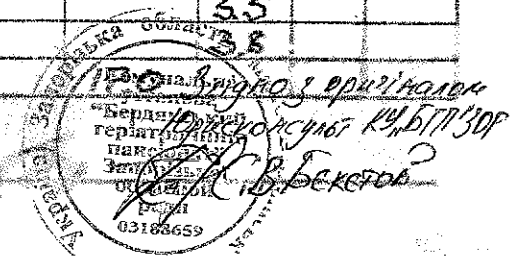 3.5
3.8
Україна Запорізька область
Комунальна
установа
"Бердянський
геріатричний
пансіонат"
Запорізької
обласної
ради
03188659
Згідно з оригіналом
Юрисконсульт КУ„БГП"ЗОР
С.В. Бекетов